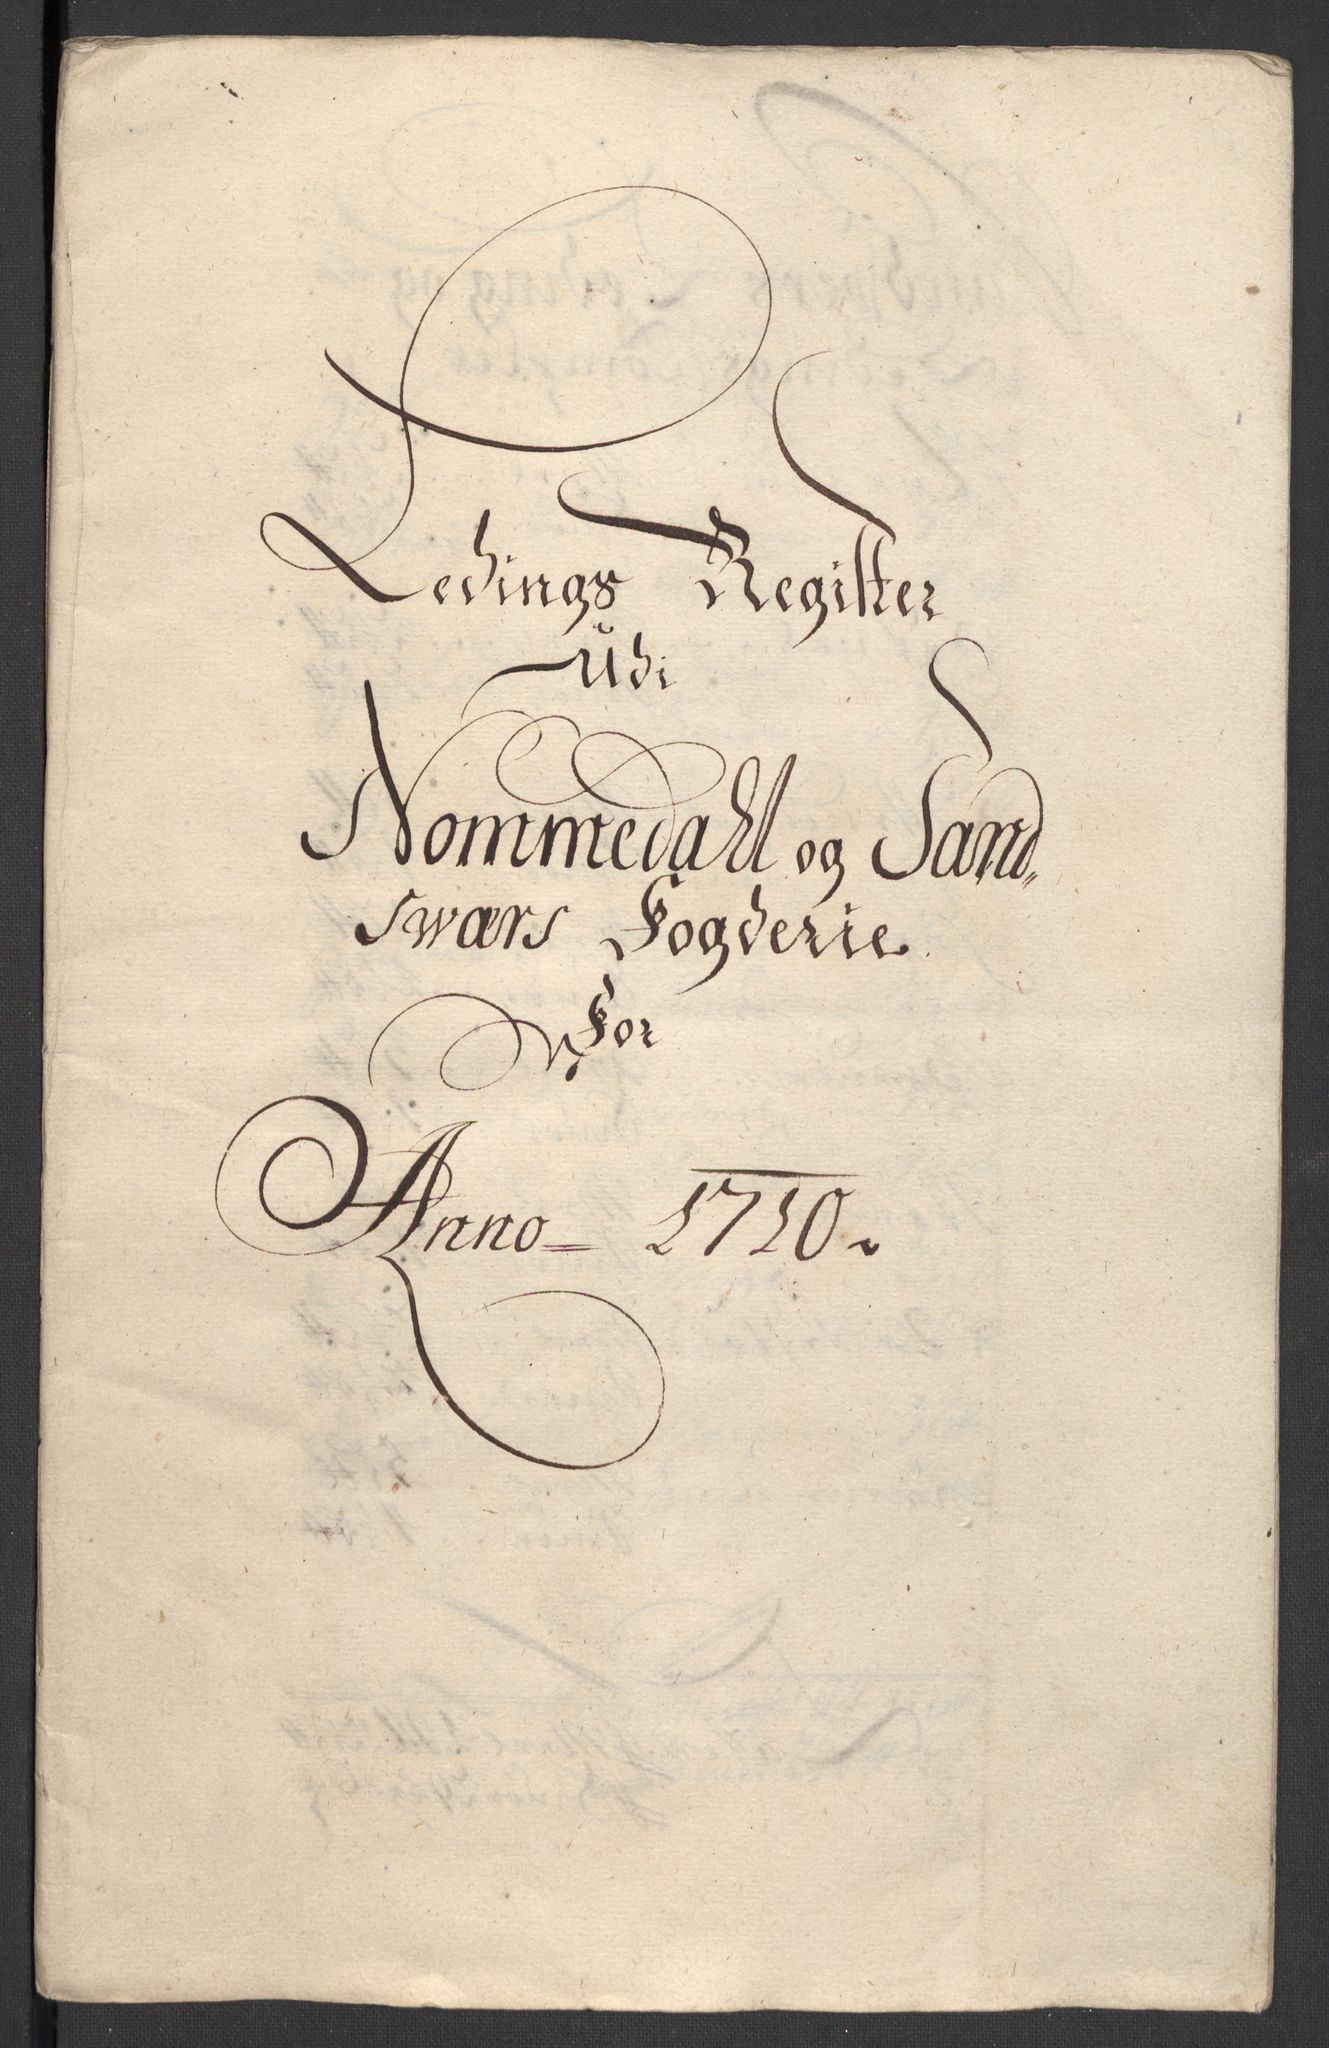 Ledings Register
Udi
Nommedahl og Sand,,
swærs Fogderie.
For
Anno 1710.